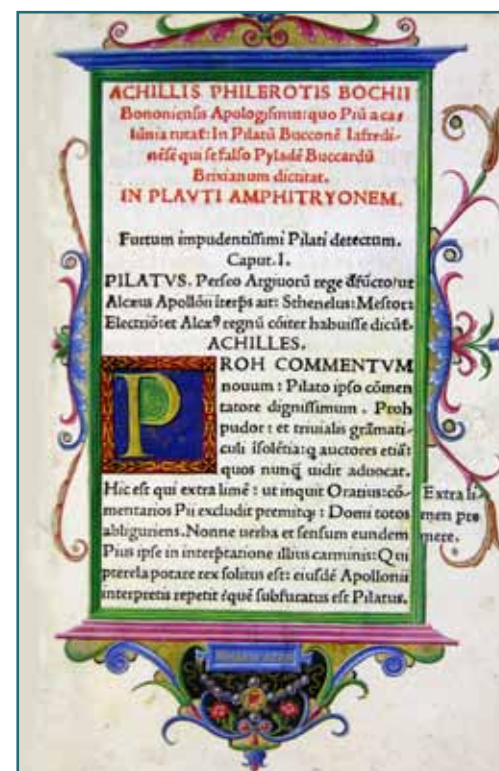 ACHILLIS PHILEROTIS BOCHII
Bononiensis Apologismus: quo Piū a ca-
lūnia tutat: In Pilatū Bocconē Iafredi-
nēsē qui se falso Pyladē Buccardū
Brixianum dictitat.
IN PLAVTI AMPHITRYONEM.
Furtum impudentissimi Pilati detectum.
Caput. I.
PILATVS. Perseo Argiuorū rege ut
Alcæus Apollōii īterp̄s ait: Sthenelus: Mestor:
Electriō: et Alcæꝰ regnū cōiter habuisse dicūt.
ACHILLES.
PROH COMMENTVM
nouum: Pilato ipso cōmen
tatore dignissimum. Proh
pudor: et triuialis grāmati-
culi īsolētia: q auctores etiā:
quos nunq̄ uidit aduocat.
Hic est qui extra limē: ut inquit Oratius: cō-
mentarios Pii excludit premitq: Domi totos
abliguriens. Nonne uerba et sensum eundem
Pius ipse in interp̄tatione illius carminis: Qui
pterela potare rex solitus est: eiusdē Apollonii
interpretis repetit subfuratus est Pilatus.
Extra li-
men pre
mere.